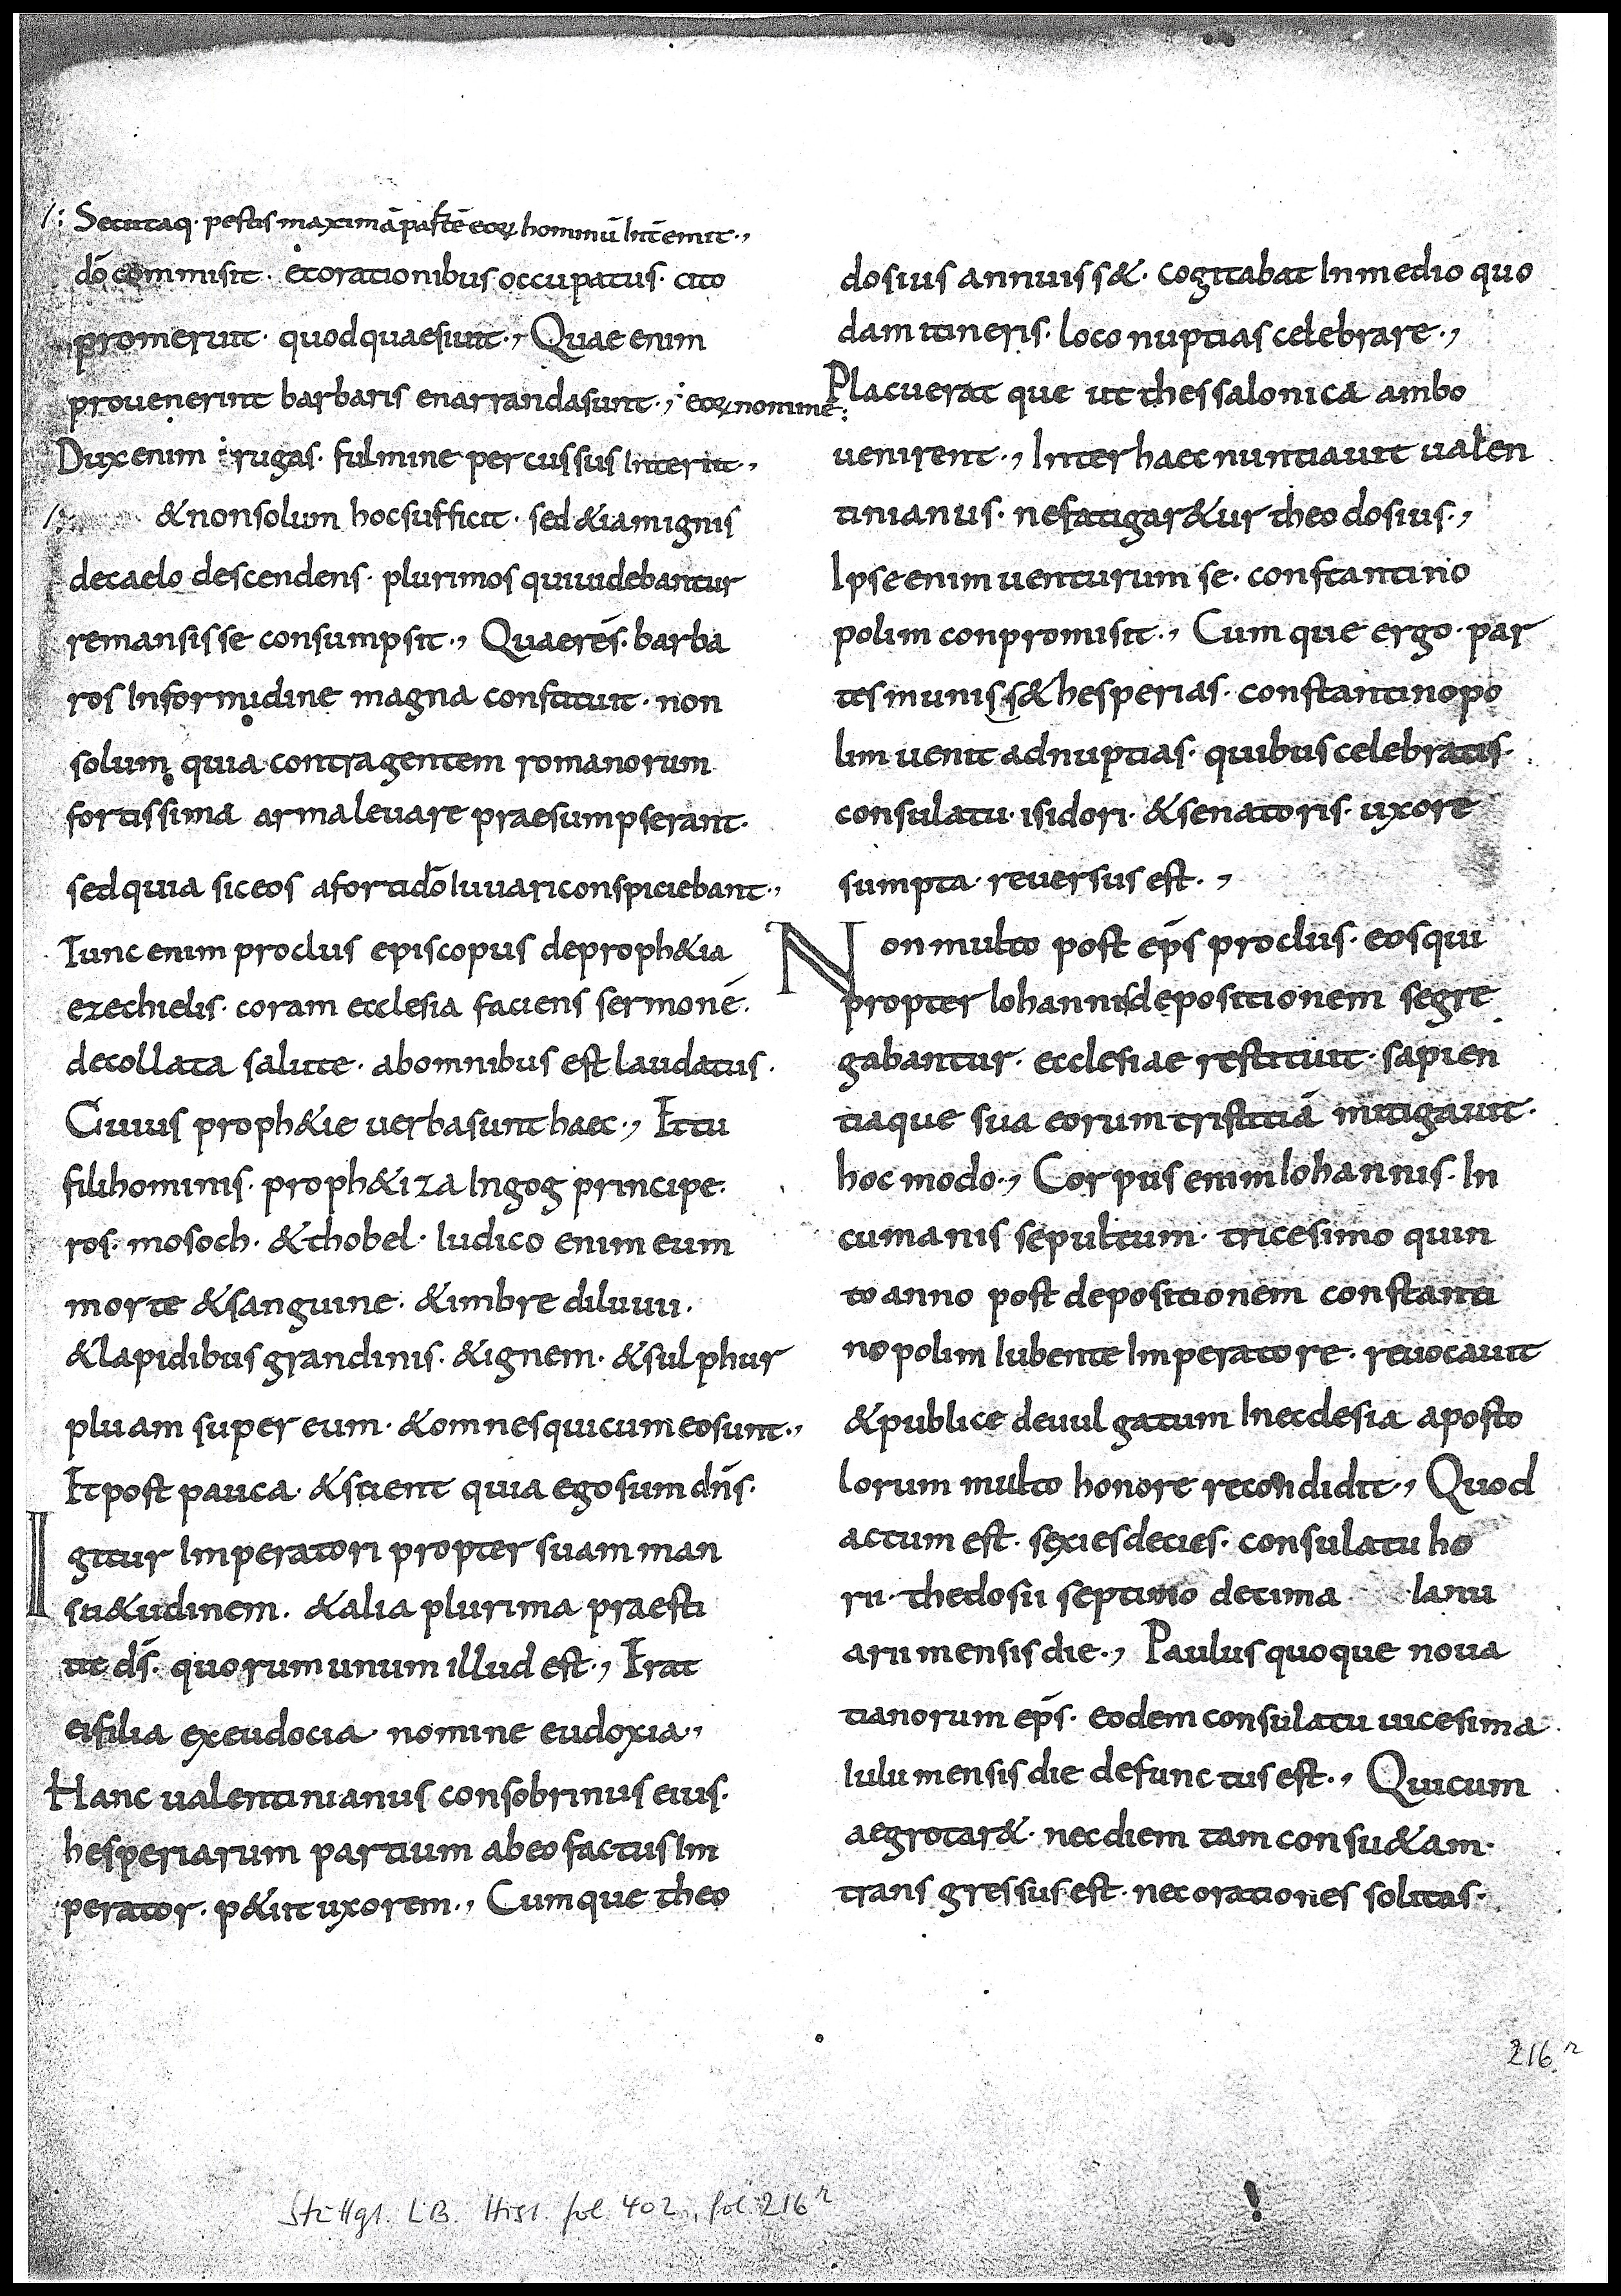 /: Secutaq. pestis maximā partē eoꝝ hominū Intēmit.,
dō commisit. et orationibus occupatus. cito
promeruit. quod quaesiuit., Quae enim
prouenerint barbaris enarranda sunt., ⁒ eoꝝ nomine:
Dux enim ⁒ rugas. fulmine percussus Interiit.,
/: & non solum hoc sufficit. sed &iam ignis
de caelo descendens. plurimos qui uidebantur
remansisse consumpsit., Quae rēs. barba
ros In formidine magna constituit. non
solum quia contra gentem romanorum
fortissima arma leuare praesumpserant.
sed quia sic eos a forti dō Iuuari conspiciebant.,
Tunc enim proclus episcopus de proph&ia
ezechielis. coram ecclesia faciens sermonē.
de collata salute. ab omnibus est laudatus.
Cuius proph&ie uerba sunt haec., Et tu
fili hominis. proph&iza In gog principe.
ros. mosoch. & thobel. Iudico enim eum
morte & sanguine. & imbre diluuii.
& lapidibus grandinis. & ignem. & sulphur
pluam super eum. & omnes qui cum eo sunt.,
Et post pauca. & scient quia ego sum dn̄s.
Igitur Imperatori propter suam man
su&udinem. & alia plurima praesti
tit ds̄. quorum unum illud est., Erat
ei filia ex eudocia nomine eudoxia.,
Hanc ualentinianus consobrinus eius.
hesperiarum partium ab eo factus Im
perator. p&iit uxorem., Cumque theo
dosius annuiss&. cogitabat In medio quo
dam itineris. loco nuptias celebrare.,
Placuerat que ut thessalonica ambo
uenirent., Inter haec nuntiauit ualen
tinianus. ne fatigar&ur theodosius.,
Ipse enim uenturum se. constantino
polim conpromisit., Cum que ergo. par
tes muniss& hesperias. constantinopo
lim uenit ad nuptias. quibus celebratis.
consulatu. isidori. & senatoris. uxore
sumpta. reuersus est.,
Non multo post ep̄s proclus. eos qui
propter Iohannis depositionem segre
gabantur. ecclesiae restituit. sapien
tiaque sua eorum tristitiā mitigauit.
hoc modo., Corpus enim Iohannis. In
cumanis sepultum. tricesimo quin
to anno post depositionem constanti
nopolim Iubente Imperatore. reuocauit
& publice deuulgatum In ecclesia aposto
lorum multo honore recondidit., Quod
actum est. sexies decies. consulatu ho
rii. thedosii septimo decima Ianu
arii mensis die., Paulus quoque noua
tianorum ep̄s. eodem consulatu uicesima
Iulii mensis die defunctus est., Qui cum
aegrotar&. nec diem tam consu&am.
transgressus est. nec orationes solitas.
216 r
Stuttgt. LB. Hist. fol. 402, fol. 216 r